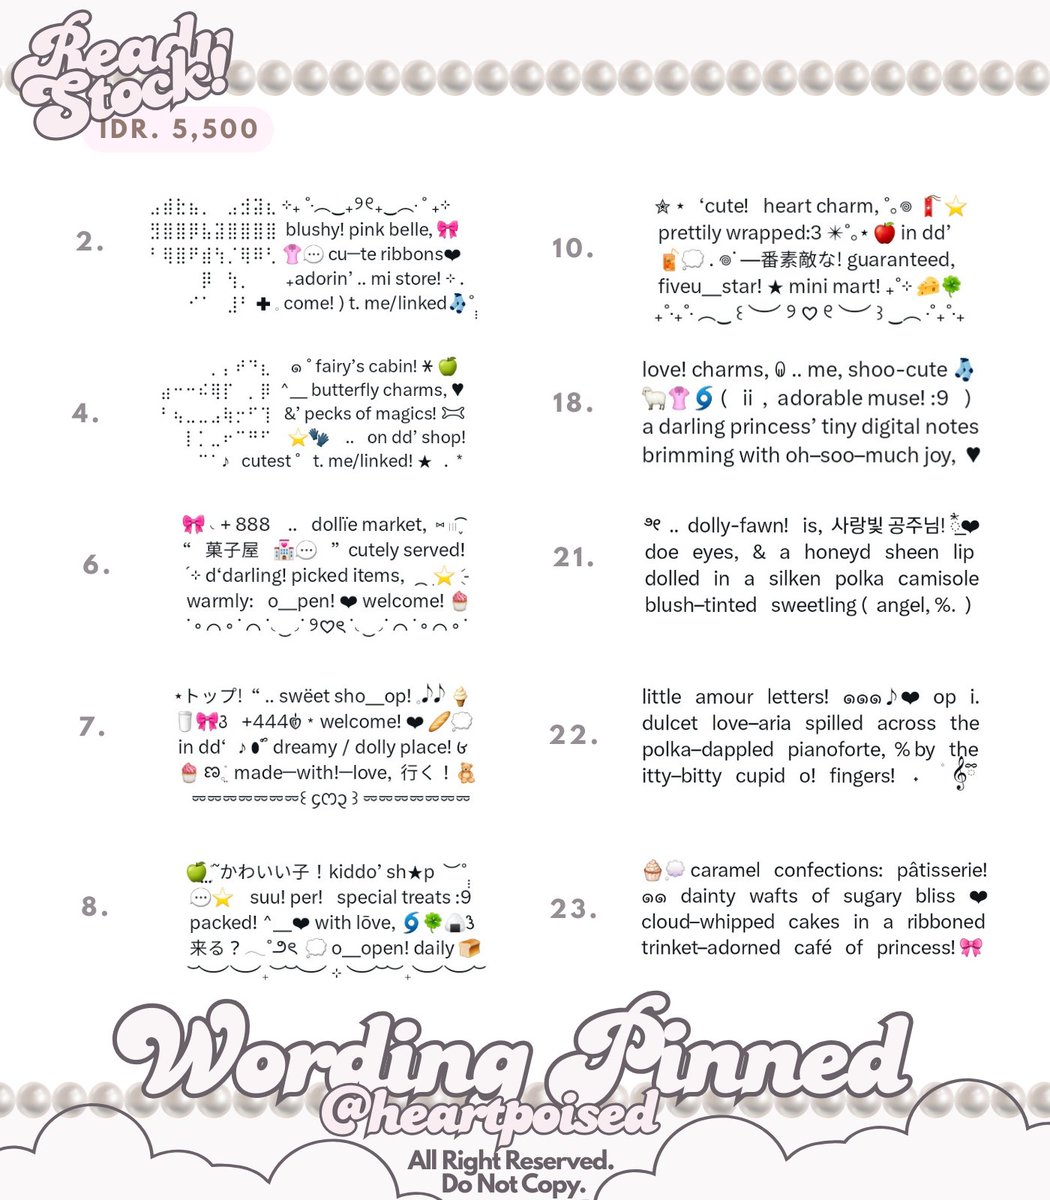 Ready
Stock!
IDR. 5,500
2.
⊹₊ ˚‧︵‿₊୨୧₊‿︵‧ ˚ ₊⊹
blushy! pink belle, 🎀
👚💬 cu─te ribbons❤
₊adorin’ .. mi store! ⊹ .
✚ . come! ) t. me/linked🧦˚
4.
๑ ˚ fairy’s cabin! 🍏
^__ butterfly charms, ♥
&’ pecks of magics!
⭐🧤 .. on dd’ shop!
♪ cutest ˚ t. me/linked! ★ . *
6.
🎀 ◟ + 888 .. dollïe market, ⑅
“ 菓子屋 🏩💬 ” cutely served!
´⊹ d‘darling! picked items, ⭐
warmly: o__pen! ❤ welcome! 🧁
7.
⋆トップ! “ .. swëet sho__op! 🍦
🥛🎀3 +444 ⋆ welcome! ❤ 🥖💭
in dd‘ ♪ dreamy / dolly place!
🧁 made─with!─love, 行く！🧸
8.
🍏 かわいい子！kiddo’ sh★p
💬⭐ suu! per! special treats :9
packed! ^__❤ with lōve, 🌀🍀🍙3
来る？ 💭 o__open! daily 🍞
10.
✮ ⋆ ‘cute! heart charm, ˚｡๑ 🧧⭐
prettily wrapped:3 ✳˚｡⋆ 🍎 in dd’
🧃💭 . ๑˙ —番素敵な! guaranteed,
fiveu__star! ★ mini mart! ₊˚⊹ 🧀🍀
₊˚‧₊˚‧ ︵‿ ꒰ ︶ ୨ ♡ ୧ ︶ ꒱ ‿︵ ‧˚₊‧˚₊
18.
love! charms, .. me, shoo-cute 🧦
🐑👚🌀 ( ii , adorable muse! :9 )
a darling princess’ tiny digital notes
brimming with oh–soo–much joy, ♥
21.
.. dolly-fawn! is, 사랑빛 공주님! ❤
doe eyes, & a honeyd sheen lip
dolled in a silken polka camisole
blush–tinted sweetling ( angel, %. )
22.
little amour letters! ๑๑๑♪❤ op i.
dulcet love–aria spilled across the
polka–dappled pianoforte, % by the
itty–bitty cupid o! fingers! 𝄞
23.
🧁💭 caramel confections: pâtisserie!
๑๑ dainty wafts of sugary bliss ❤
cloud–whipped cakes in a ribboned
trinket–adorned café of princess! 🎀
Wording Pinned
@heartpoised
All Right Reserved.
Do Not Copy.